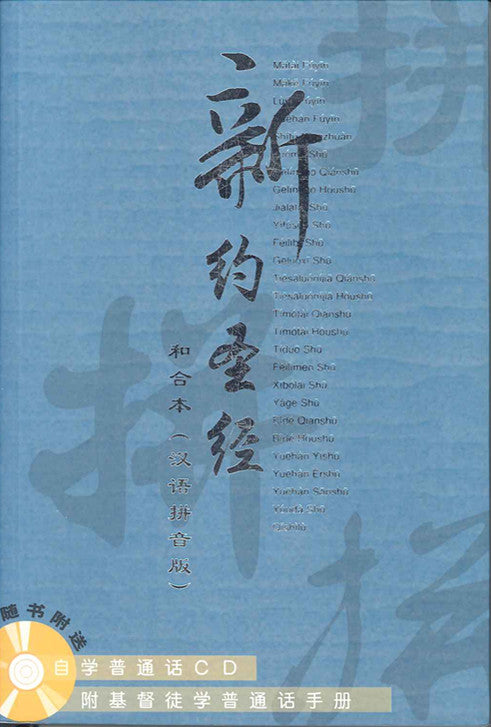 新约圣经
和合本（汉语拼音版）
Mǎtài Fúyīn
Mǎkě Fúyīn
Fúyīn
Yuēhàn Fúyīn
Shū
Qiánshū
Hòushū
Jiālātài Shū
Shū
Féilìbǐ Shū
Gēluóxī Shū
Tiēsāluóníjiā Qiánshū
Tiēsāluóníjiā Hòushū
Tímótài Qiánshū
Tímótài Hòushū
Tíduō Shū
Féilìmén Shū
Xībólái Shū
Yǎgè Shū
Bǐdé Qiánshū
Bǐdé Hòushū
Yuēhàn Yīshū
Yuēhàn Èrshū
Yuēhàn Sānshū
Yóudà Shū
Qǐshìlù
拼
拼
拼
随书附送
自学普通话CD
附基督徒学普通话手册